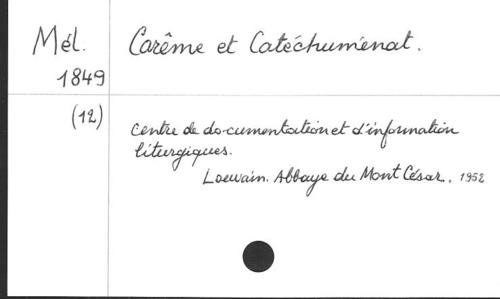 Mél. Carême et Catéchuménat.
1849
(12) Centre de documentation et d'information
liturgiques.
Louvain. Abbaye du Mont César, 1952